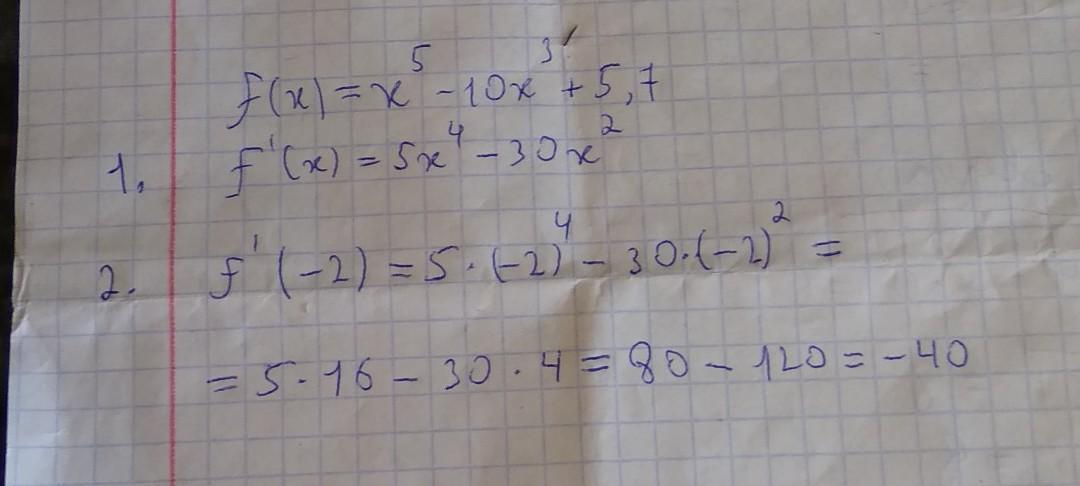 f(x) = x⁵ - 10x³ + 5,7
1. f'(x) = 5x⁴ - 30x²
2. f'(-2) = 5·(-2)⁴ - 30·(-2)² =
= 5·16 - 30·4 = 80 - 120 = -40